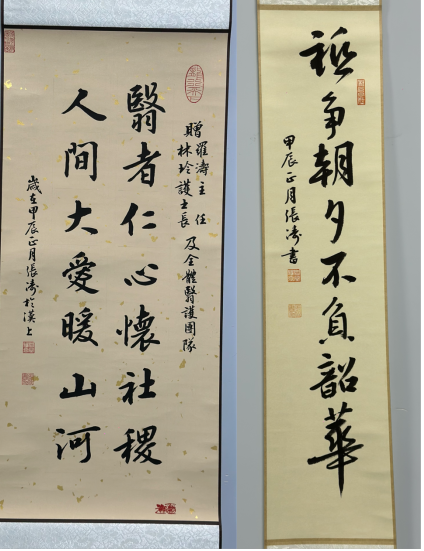 贈羅濤主任
林玲護士長 及全體醫護團隊
醫者仁心懷社稷
人間大愛暖山河
歲在甲辰正月張濤於漢上
祗争朝夕不負韶華
甲辰正月張濤書